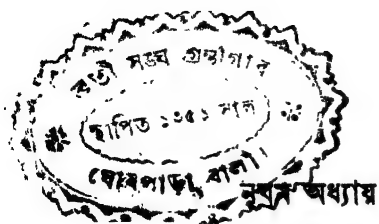 ব্রতী সঙ্ঘ গ্রন্থাগার
স্থাপিত ১৩৫১ সাল
ঘোষপাড়া, বালী।
অধ্যায়